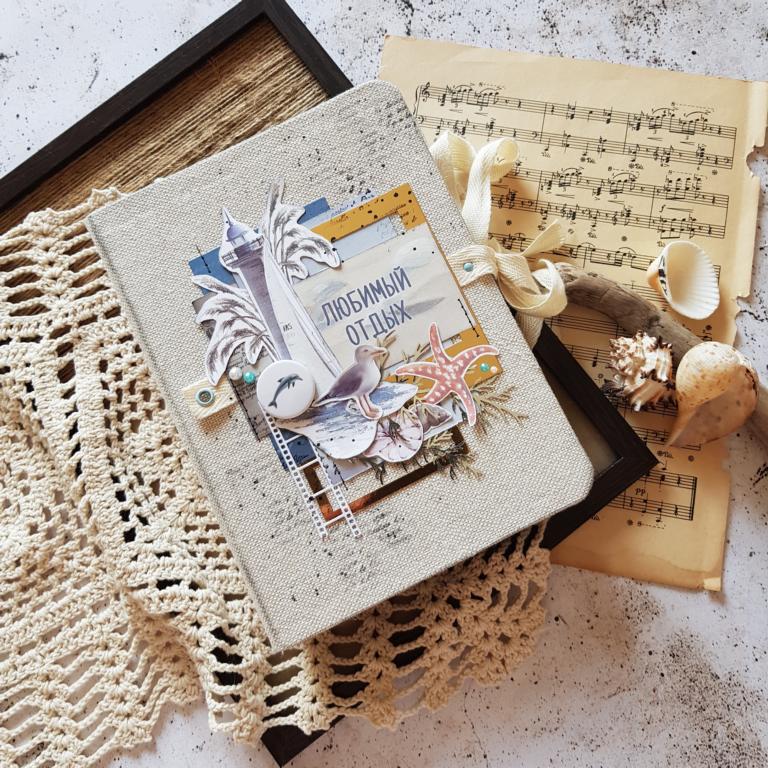 ЛЮБИМЫЙ
ОТДЫХ
pp